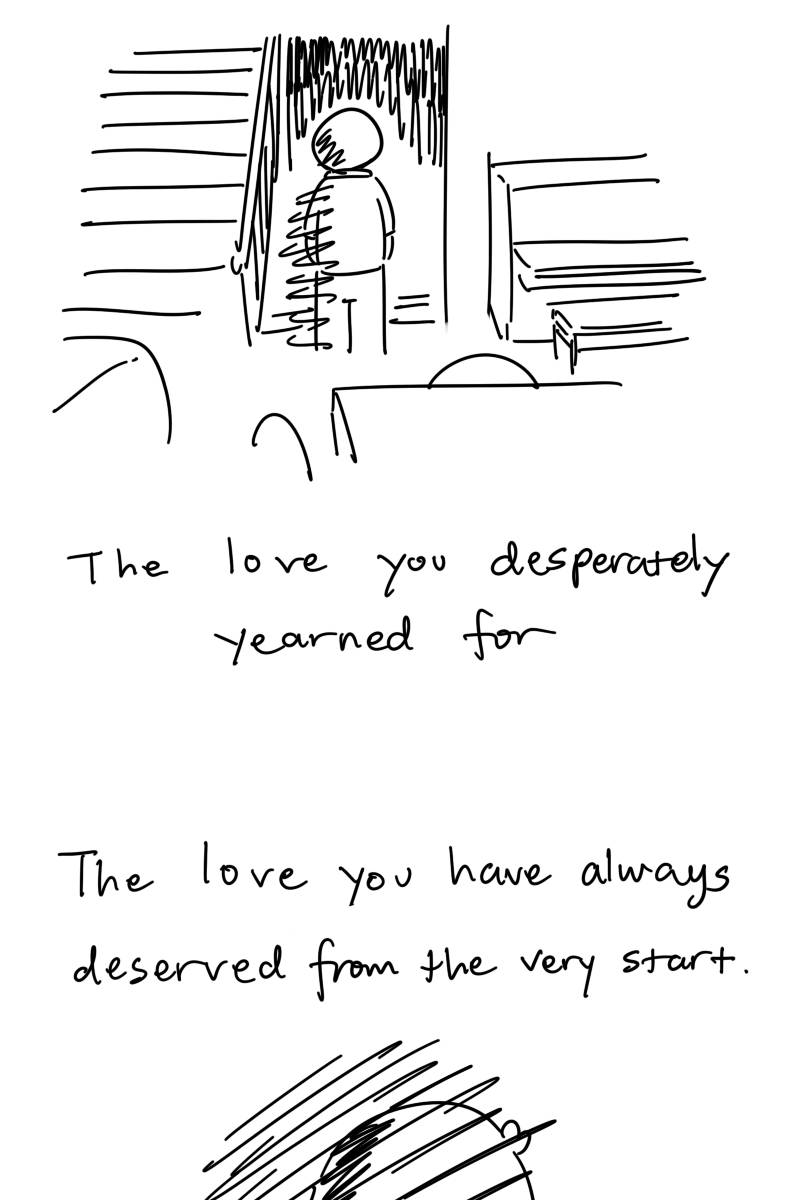 The love you desperately
yearned for
The love you have always
deserved from the very start.